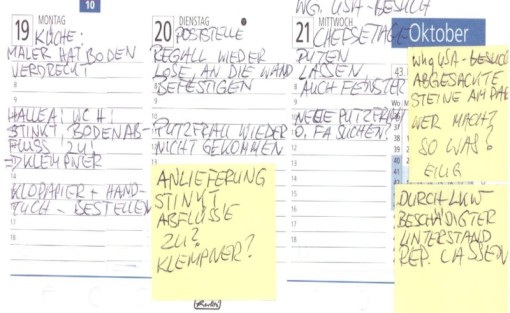 10
19 MONTAG
KÜCHE:
MALER HAT BODEN
VERDRECKT!
8
9
HALLE A: WC H:
STINKT, BODENAB-
FLUSS ZU!
KLEMPNER
14
KLOPAPIER + HAND-
TUCH - BESTELLEN
17
18
20 DIENSTAG
POSTSTELLE
REGALL WIEDER
LOSE, AN DIE WAND
BEFESTIGEN
PUTZFRAU WIEDER
NICHT GEKOMMEN
ANLIEFERUNG
STINKT
ABFLÜSSE
ZU?
KLEMPNER?
WG. USA-BESUCH
21 MITTWOCH
CHEFSETAGE
PUTEN
LASSEN,
8 AUCH FENSTER
9
NEUE PUTZFRAU
O. FA SUCHEN?
12
13
14
15
16
17
18
Oktober
43.
Wo M
37
38
39
40
41
WHG USA-BESUCH
ABGESACKTE
STEINE AM
WER MACHT
SO WAS?
EILIG
DURCH LKW
BESCHÄDIGTER
UNTERSTAND
REP. LASSEN